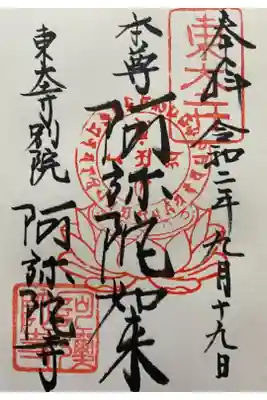 奉拝 令和二年 九月十九日
本尊 阿弥陀如来
東大寺別院 阿弥陀寺
東大寺